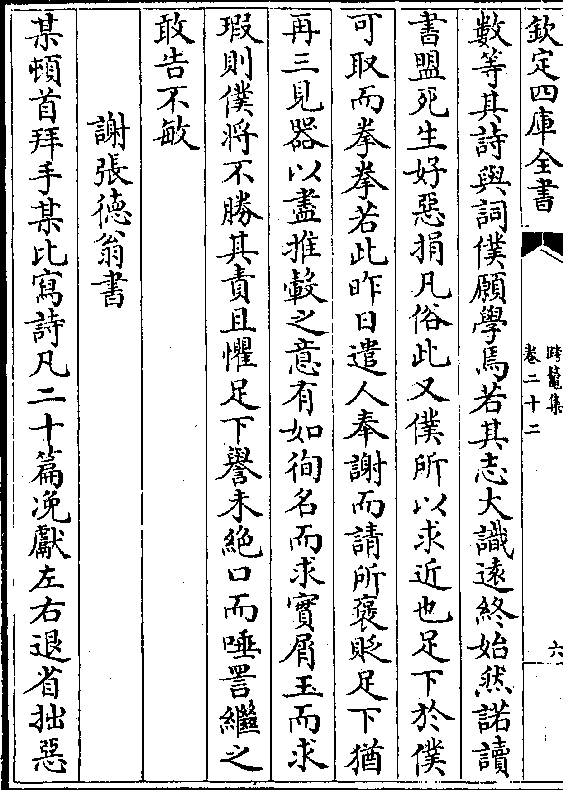 欽定四庫全書
跨鼇集
卷二十二
六
數等其詩與詞僕願學焉若其志大識遠終始然諾讀
書盟死生好惡捐凡俗此又僕所以求近也足下於僕
可取而拳拳若此昨日遣人奉謝而請所褒貶足下猶
再三見器以盡推轂之意有如徇名而求實屑玉而求
瑕則僕將不勝其責且懼足下譽未絶口而唾詈繼之
敢告不敏
謝張德翁書
某頓首拜手某比寫詩凡二十篇凂獻左右退省拙惡